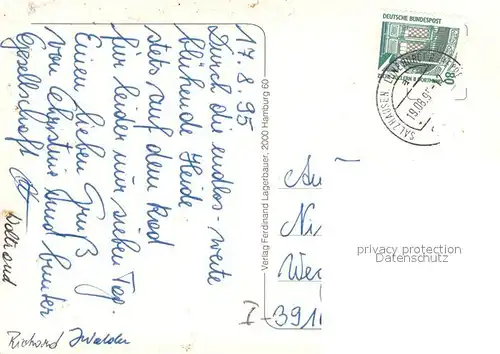 17.8.95
Durch die endlos-weite
blühende Heide
stets auf dem Rad
für leider nur sieben Tag.
Einen lieben Gruß
von Christine und bunter
Gesellschaft
Waltraud
Richard
Verlag Ferdinand Lagerbauer, 2000 Hamburg 60
DEUTSCHE BUNDESPOST
80
SALZHAUSEN
19.08.9
An
I-391
privacy protection
Datenschutz